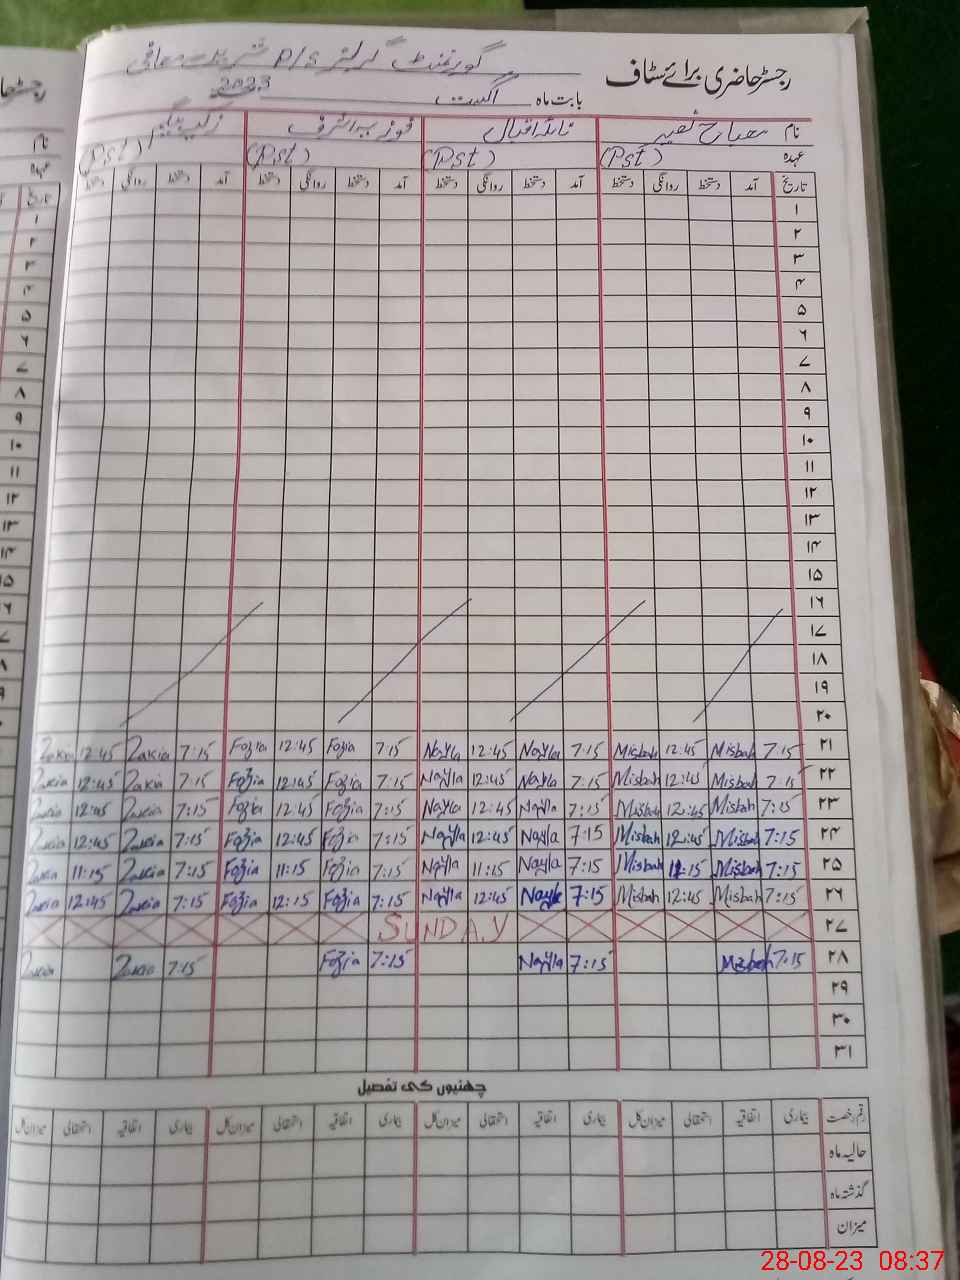 رجسٹر حاضری برائے سٹاف
گورنمنٹ گرلز P/S شریف معافی
بابت ماہ اگست 2023
نام مصباح نصیر نائلہ اقبال فوزیہ اشرف
عہدہ (Pst) (Pst) (Pst) (Pst)
تاریخ آمد دستخط روانگی دستخط آمد دستخط روانگی دستخط آمد دستخط روانگی دستخط آمد دستخط روانگی دستخط
۱
۲
۳
۴
۵
۶
۷
۸
۹
۱۰
۱۱
۱۲
۱۳
۱۴
۱۵
۱۶
۱۷
۱۸
۱۹
۲۰
۲۱ 7:15 Misbah 12:45 Misbah 7:15 Nayla 12:45 Nayla 7:15 Fozia 12:45 Fozia 7:15 Zakia 12:45 Zakia
۲۲ 7:15 Misbah 12:45 Misbah 7:15 Nayla 12:45 Nayla 7:15 Fozia 12:45 Fozia 7:15 Zakia 12:45 Zakia
۲۳ 7:15 Misbah 12:45 Misbah 7:15 Nayla 12:45 Nayla 7:15 Fozia 12:45 Fozia 7:15 Zakia 12:45 Zakia
۲۴ 7:15 Misbah 12:45 Misbah 7:15 Nayla 12:45 Nayla 7:15 Fozia 12:45 Fozia 7:15 Zakia 12:45 Zakia
۲۵ 7:15 Misbah Misbah 7:15 Nayla 11:15 Nayla 7:15 Fozia 11:15 Fozia 7:15 Zakia 11:15 Zakia
۲۶ 7:15 Misbah 12:45 Misbah 7:15 Nayla 12:45 Nayla 7:15 Fozia 12:15 Fozia 7:15 Zakia 12:45 Zakia
۲۷ SUNDAY
۲۸ 7:15 Misbah 7:15 Nayla 7:15 Fozia 7:15 Zakia Zakia
۲۹
۳۰
۳۱
چھٹیوں کی تفصیل
رقم رخصت بیماری اتفاقیہ استحقاقی میزان کل بیماری اتفاقیہ استحقاقی میزان کل بیماری اتفاقیہ استحقاقی میزان کل بیماری اتفاقیہ استحقاقی میزان کل
حالیہ ماہ
گذشتہ ماہ
میزان
28-08-23 08:37